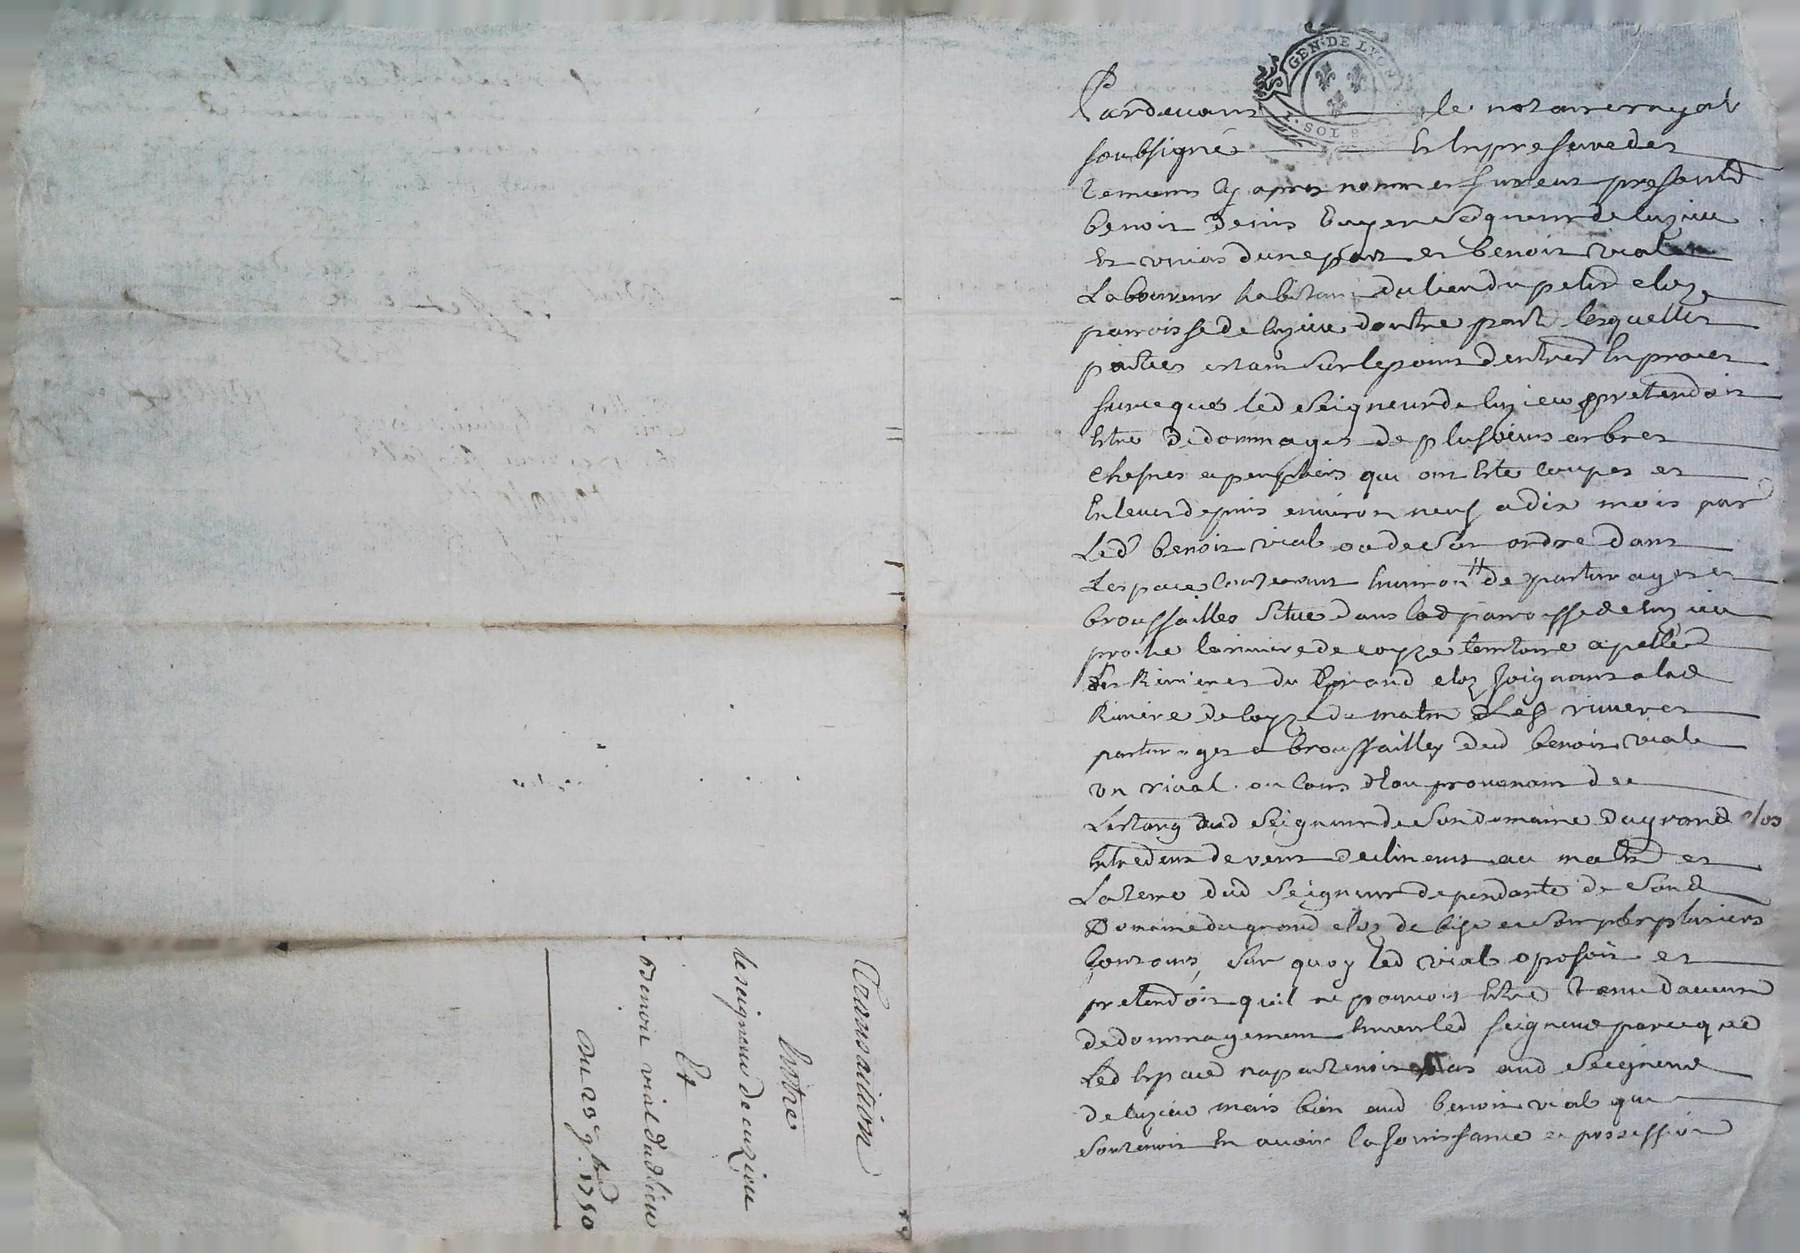 GEN. DE LYON
SOL
Pardevant le notaire royal
soubsigné Et En presence des
temoins Cy apres nommes furent presents
benoit denis Ecuyer Seigneur de Cuzieu
Et unias d'une part et benoit vial
Laboureur habitant du lieu du petit clos
parroisse de Cuzieu d'autre part lesquelles
parties estant sur le point d'entrer En proces
sur ce que led Seigneur de Cuzieu pretendoit
Estre dedommagé de plusieurs arbres
chesnes et peupliers qui ont Esté coupes et
Enleves depuis environ neuf a dix mois par
Led benoit vial ou de son ordre dans
L'espace contenant Environ de pasturages et
broussailles Situé dans lad parroisse de Cuzieu
proche la riviere de Coyze territoire apellé
les Rivieres du Grand clos Joignant a lad
Riviere de Coyze de matin Les rivieres
pasturages et broussailles dud benoit vial
un rival ou Cours d'Eau provenant de
L'estang dud Seigneur de Son domaine du grand clos
Entredeux de vent declinant au matin et
La terre dud Seigneur dependante de Sond
Domaine du grand clos de bize et Soir par plusieurs
Contours, Sur quoy led vial oposoit et
pretendoit qu'il ne pouvoit Estre tenu d'aucun
dedommagement Envers led Seigneur parce que
Led Espace n'apartenoit pas aud Seigneur
de Cuzieu mais bien aud benoit vial qui
Soutenoit En avoir la Jouissance et possession
Transaction
Entre
le seigneur de Cuzieu
Et
benoit vial dud lieu
du 25e 9bre 1750